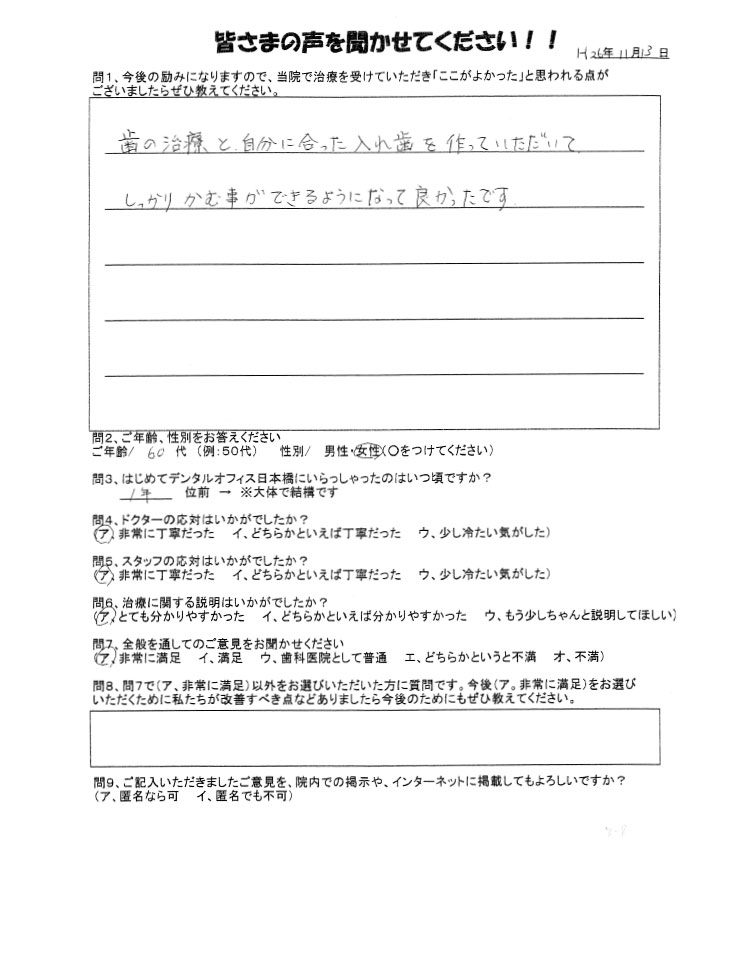 皆さまの声を聞かせてください！！
H26年11月13日
問1、今後の励みになりますので、当院で治療を受けていただき「ここがよかった」と思われる点が
ございましたらぜひ教えてください。
歯の治療と、自分に合った入れ歯を作っていただいて
しっかりかむ事ができるようになって良かったです。
問2、ご年齢、性別をお答えください
ご年齢/ 60 代（例：50代） 性別/ 男性・女性（〇をつけてください）
問3、はじめてデンタルオフィス日本橋にいらっしゃったのはいつ頃ですか？
1年 位前 → ※大体で結構です
問4、ドクターの応対はいかがでしたか？
（ア、非常に丁寧だった イ、どちらかといえば丁寧だった ウ、少し冷たい気がした）
問5、スタッフの応対はいかがでしたか？
（ア、非常に丁寧だった イ、どちらかといえば丁寧だった ウ、少し冷たい気がした）
問6、治療に関する説明はいかがでしたか？
（ア、とても分かりやすかった イ、どちらかといえば分かりやすかった ウ、もう少しちゃんと説明してほしい）
問7、全般を通してのご意見をお聞かせください
（ア、非常に満足 イ、満足 ウ、歯科医院として普通 エ、どちらかというと不満 オ、不満）
問8、問7で（ア、非常に満足）以外をお選びいただいた方に質問です。今後（ア。非常に満足）をお選び
いただくために私たちが改善すべき点などありましたら今後のためにもぜひ教えてください。
問9、ご記入いただきましたご意見を、院内での掲示や、インターネットに掲載してもよろしいですか？
（ア、匿名なら可 イ、匿名でも不可）